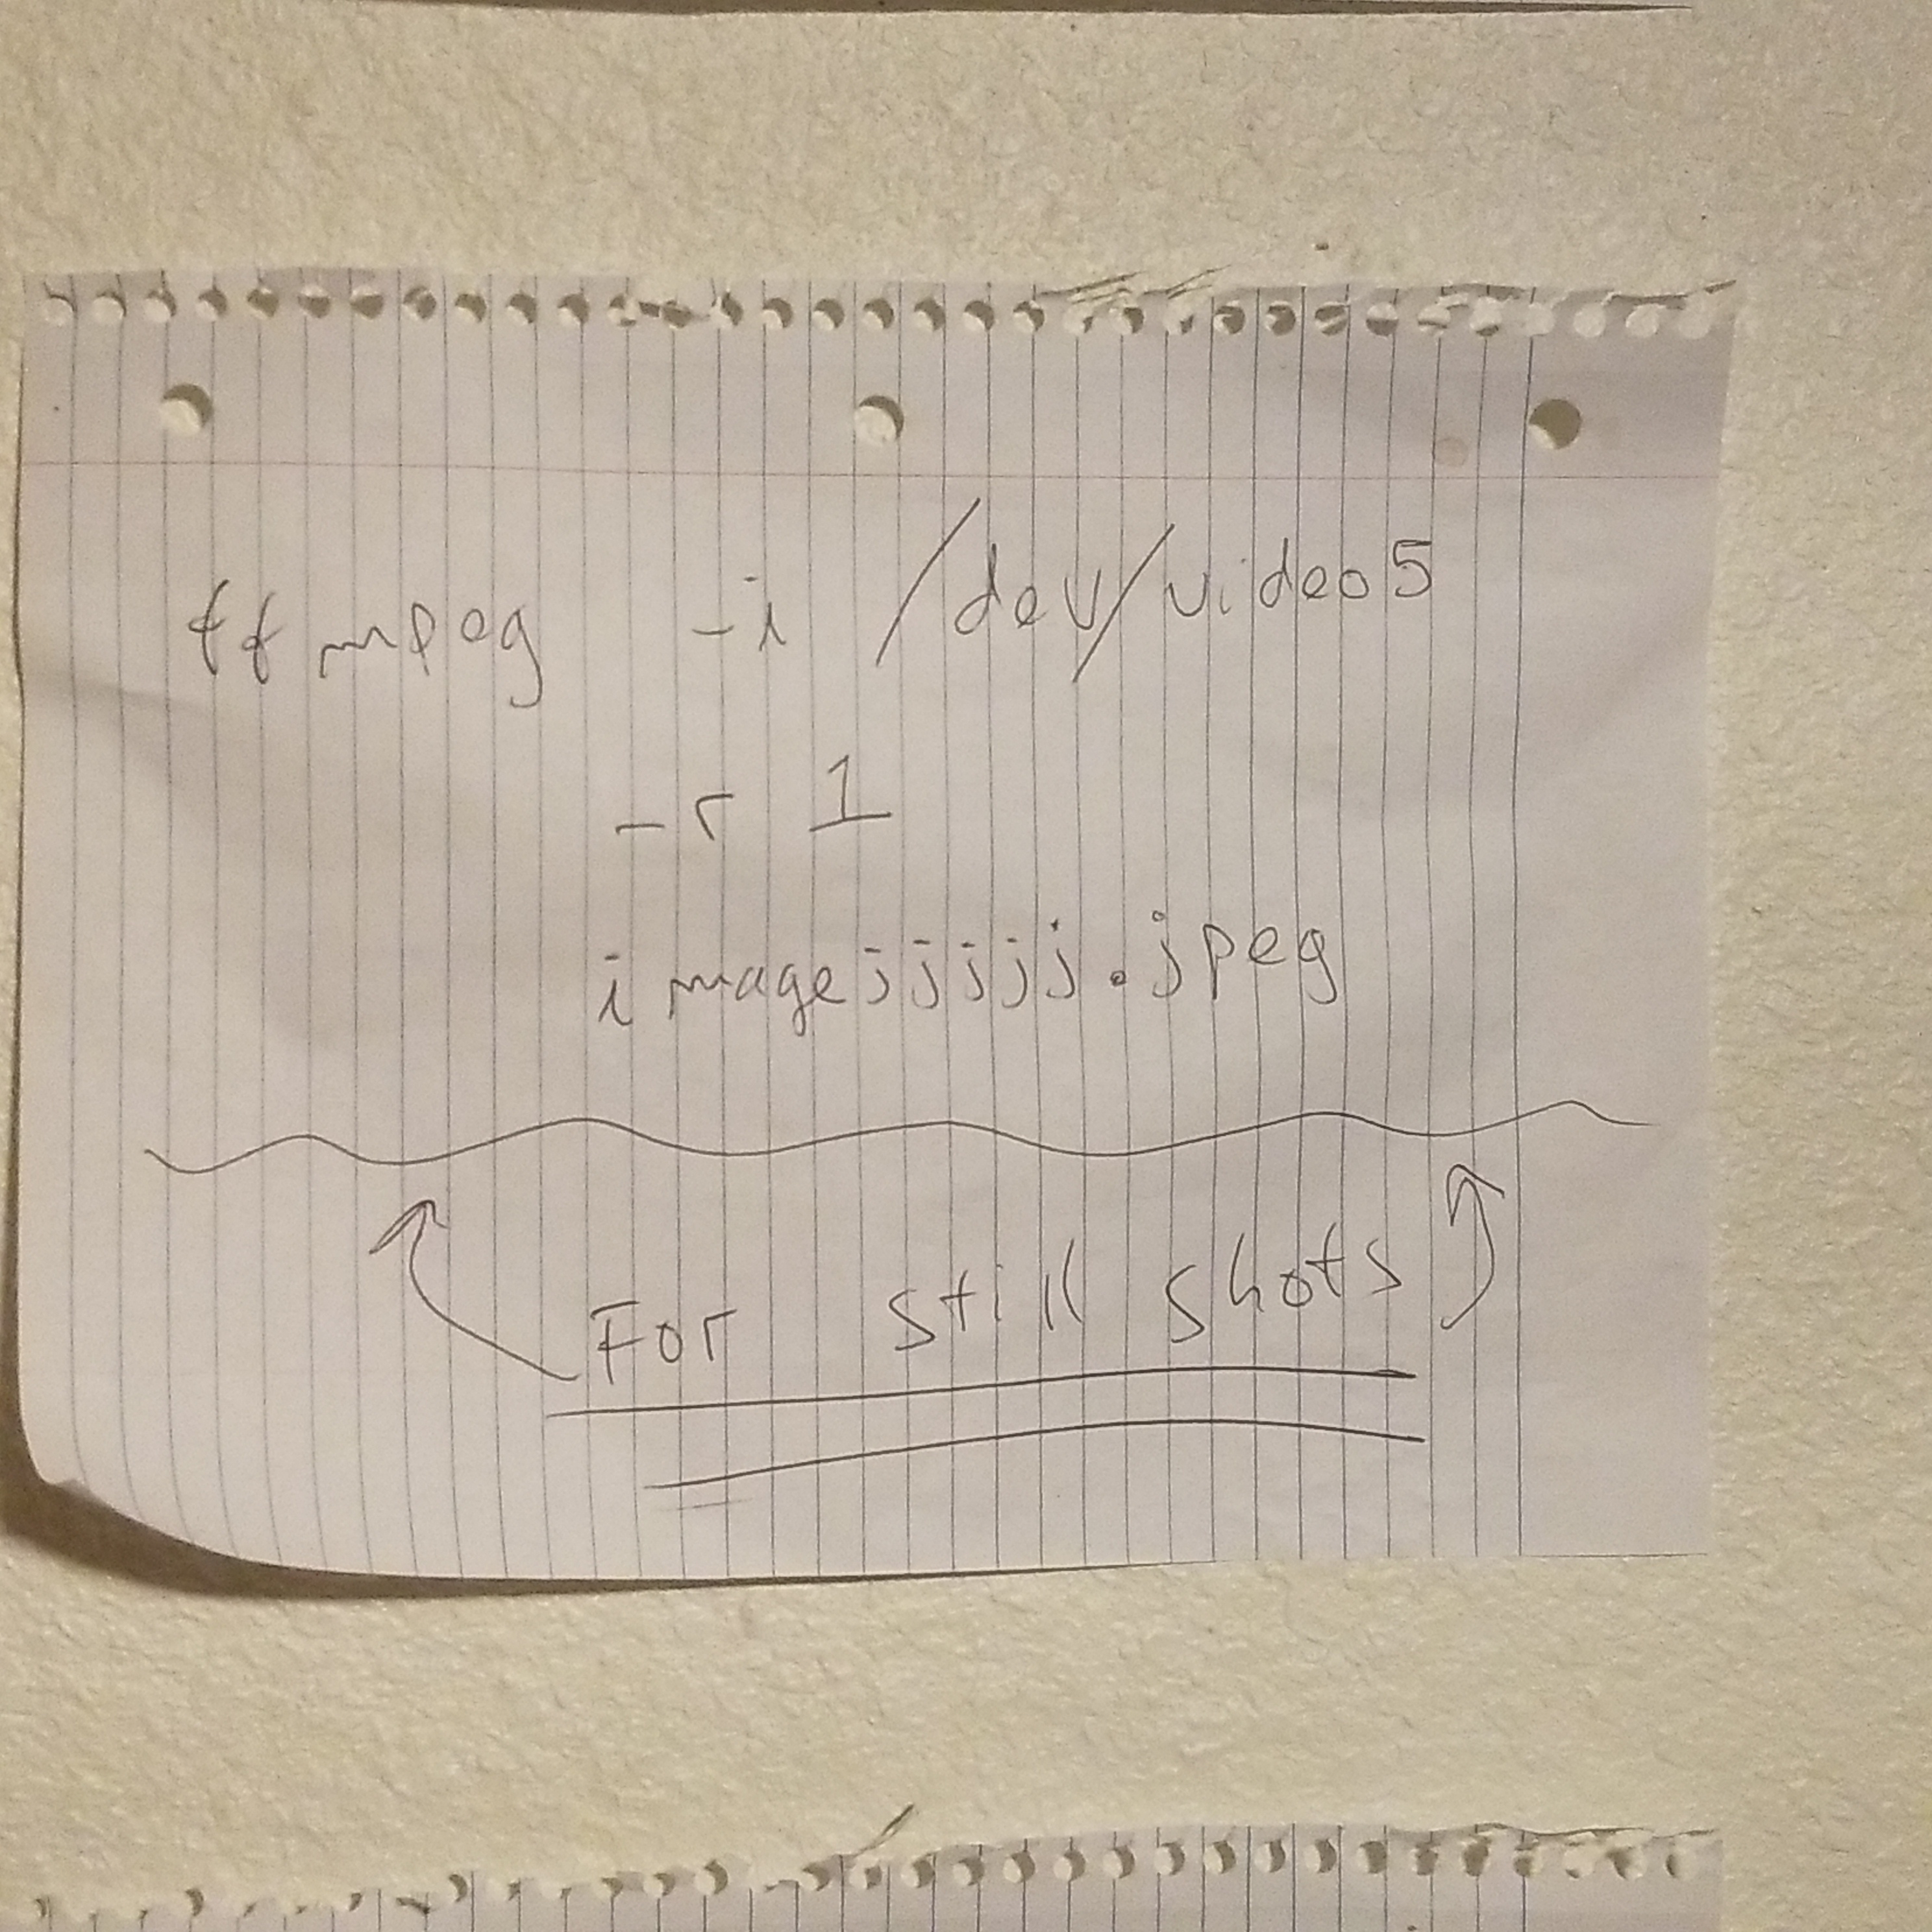 ffmpeg -i /dev/video5
-r 1
imagejjjjj.jpeg
For still shots